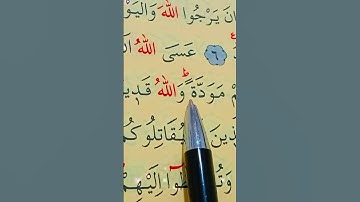 انَ يَرْجُوا اللّٰهَ وَالْيَوْ
٦ عَسَى اللّٰهُ اَ
مْ مَوَدَّةً ؕ وَاللّٰهُ قَدِيْ
ذِيْنَ يُقَاتِلُوْكُ
وَتُ طُوْا اِلَيْهِمْ